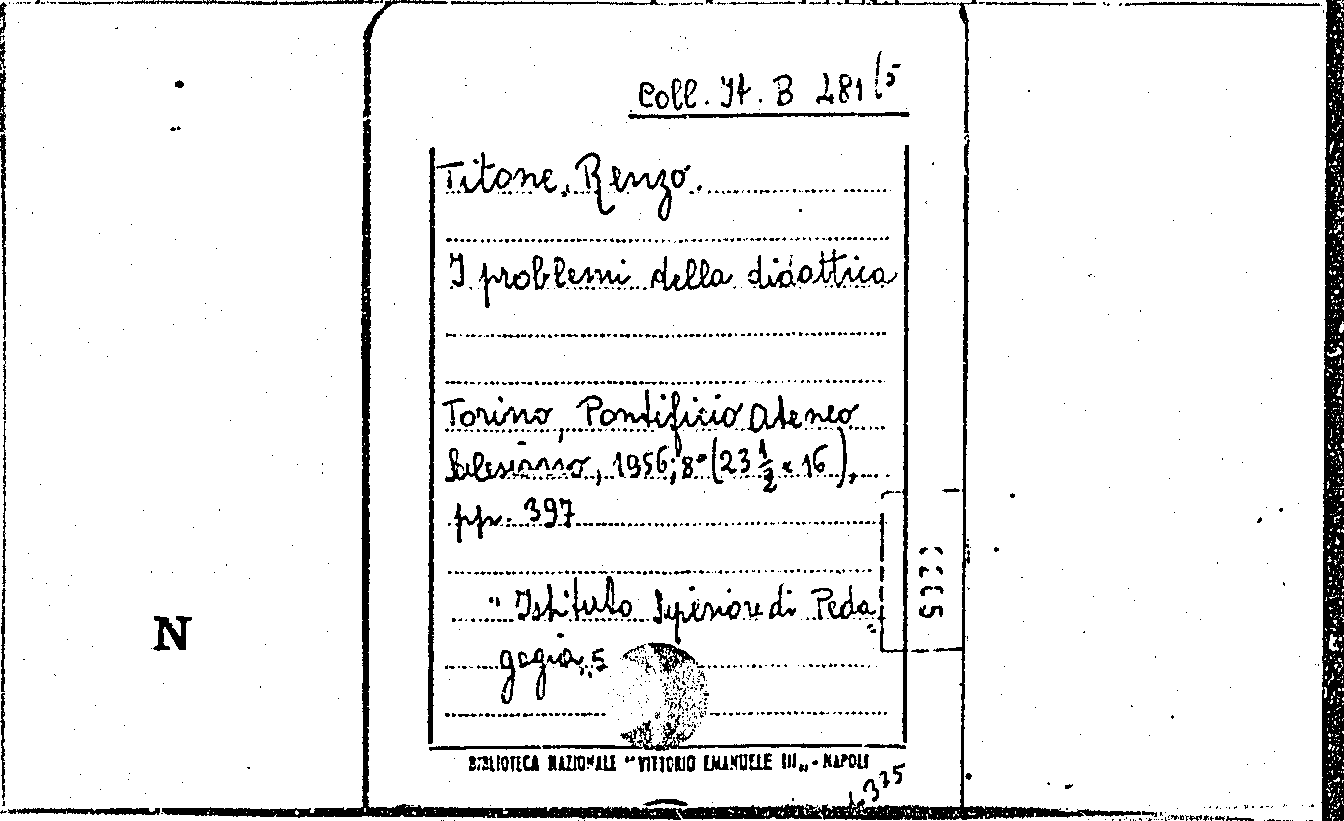 Coll. It. B 281 (5
Titone, Renzo.
I problemi della didattica
Torino, Pontificio Ateneo
Salesiano, 1956; 8° (23 1/2 x 16),
pp. 397
"Istituto Superiore di Peda=
gogia", 5
N
BIBLIOTECA NAZIONALE "VITTORIO EMANUELE III" - NAPOLI